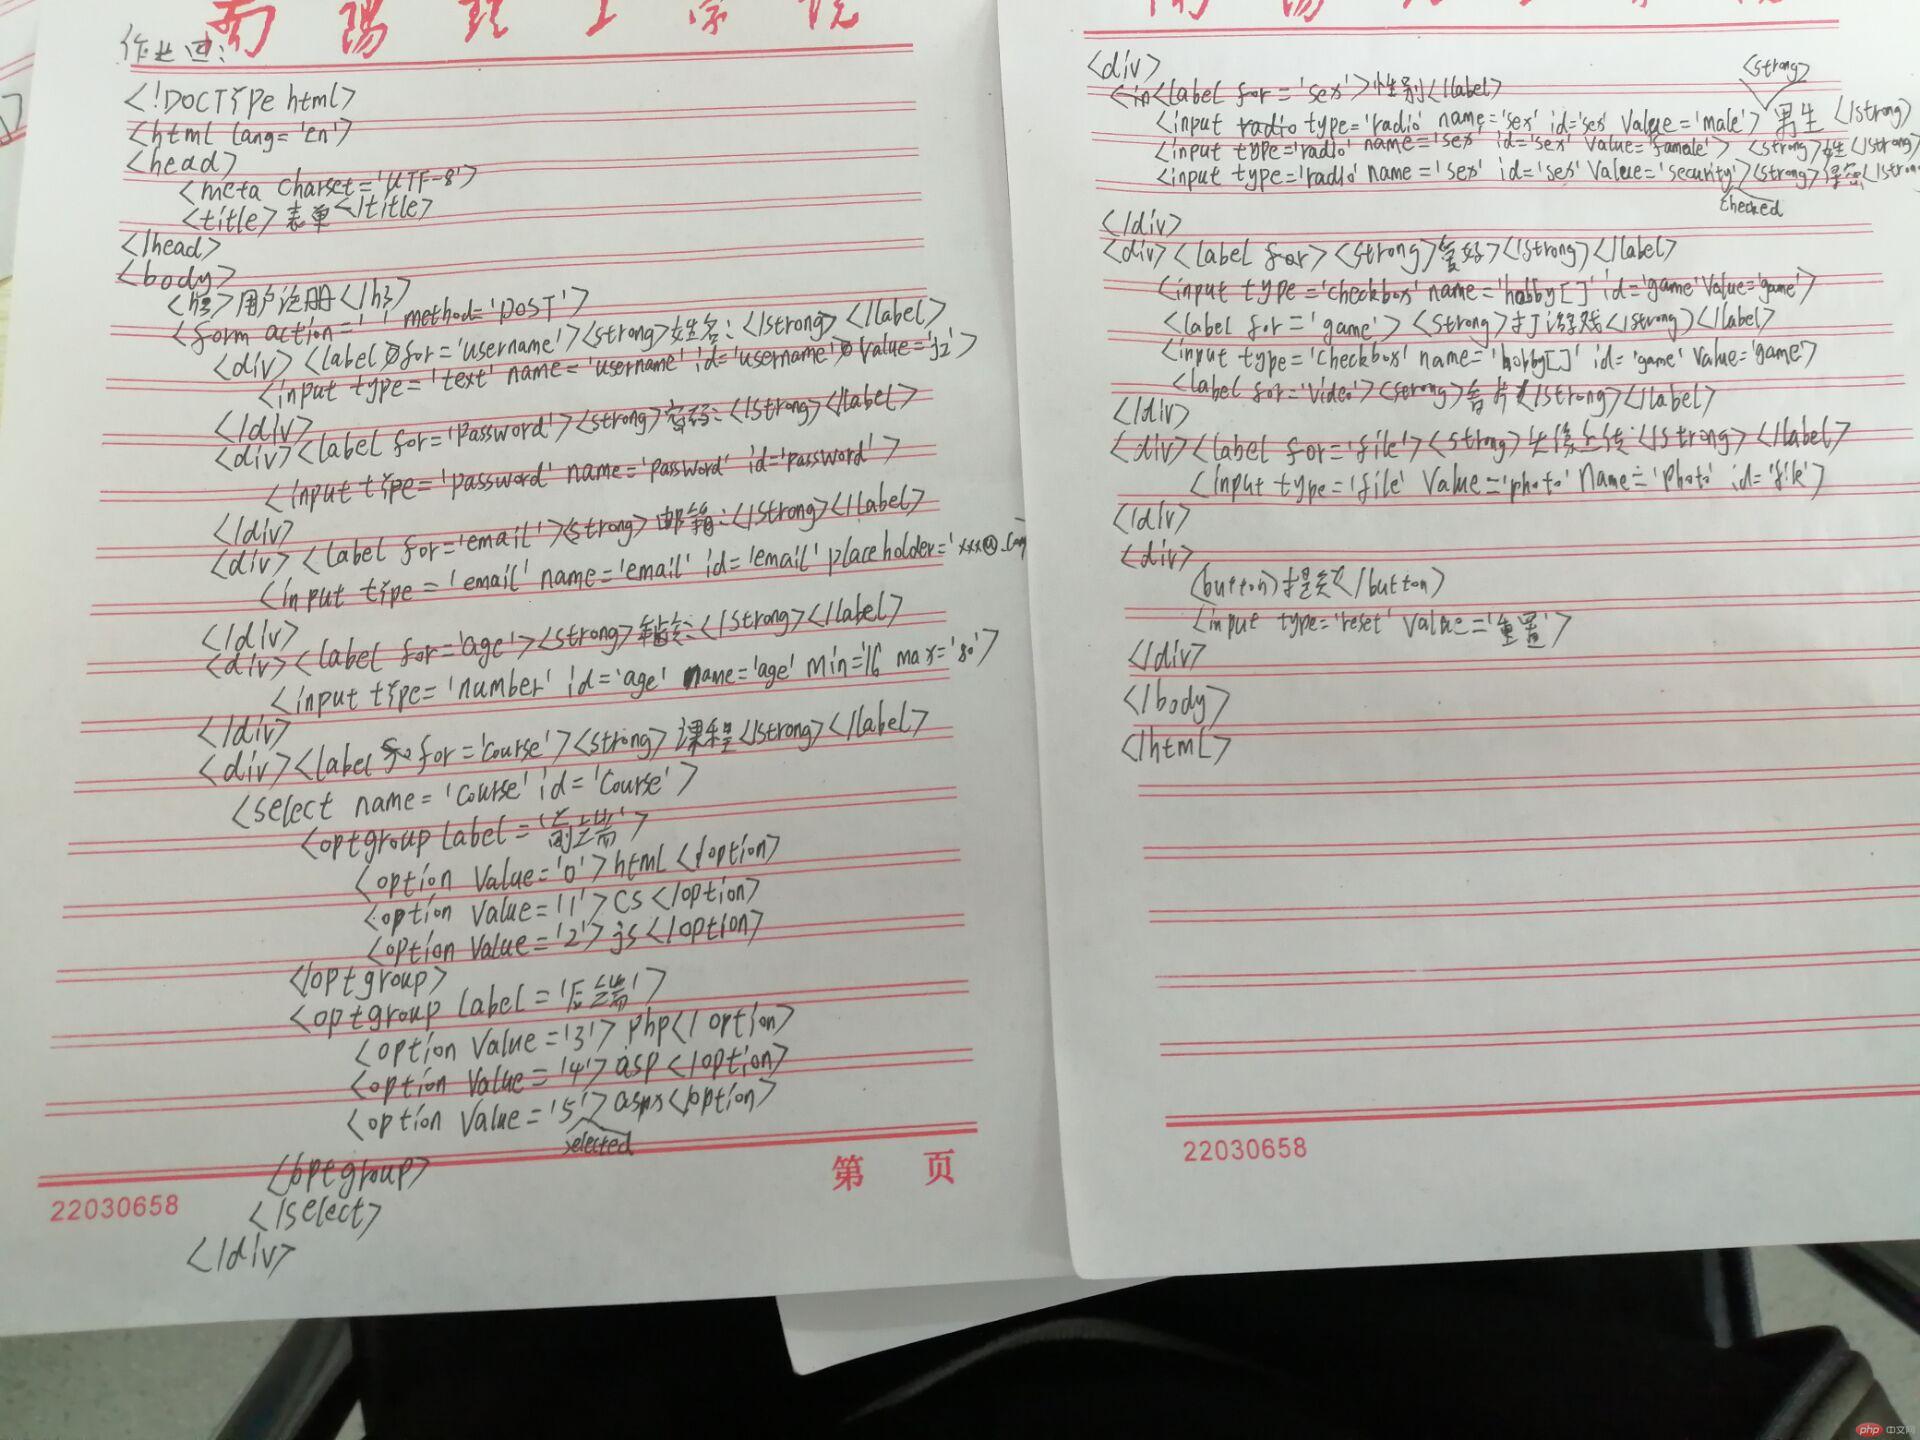 南陽理工学院
作业四:
<!DOCTYpe html>
<html lang='en'>
<head>
<meta charset='UTF-8'>
<title>表单</title>
</head>
<body>
<h3>用户注册</h3>
<form action=' ' method='POST'>
<div><label for='username'><strong>姓名:</strong></label>
<input type='text' name='username' id='username' value='j2'>
</div>
<div><label for='password'><strong>密码:</strong></label>
<input type='password' name='password' id='password'>
</div>
<div><label for='email'><strong>邮箱:</strong></label>
<input type='email' name='email' id='email' placeholder='xxx@.com
</div>
<div><label for='age'><strong>年龄:</strong></label>
<input type='number' id='age' name='age' min='16 max='80'>
</div>
<div><label for='course'><strong>课程</strong></label>
<select name='course' id='course'>
<optgroup label='前端'>
<option value='0'>html</option>
<option value='1'>cs</option>
<option value='2'>js</option>
</optgroup>
<optgroup label='后端'>
<option value='3'>php</option>
<option value='4'>asp</option>
<option value='5' selected>aspx</option>
</optgroup>
</select>
</div>
22030658
第 页
<div>
<label for='sex'>性别</label>
<input type='radio' name='sex' id='sex' value='male'><strong>男生</strong>
<input type='radio' name='sex' id='sex' value='famale'><strong></strong>
<input type='radio' name='sex' id='sex' value='security' checked><strong>保密</strong>
</div>
<div><label for><strong>爱好></strong></label>
<input type='checkbox' name='hobby[]' id='game' value='game'>
<label for='game'><strong>打游戏</strong></label>
<input type='checkbox' name='hobby[]' id='game' value='game'>
<label for='video'><strong>看片</strong></label>
</div>
<div><label for='file'><strong>头像上传:</strong></label>
<input type='file' value='photo' name='photo' id='file'>
</div>
<div>
<button>提交</button>
<input type='reset' value='重置'>
</div>
</body>
</html>
22030658
php 中文网